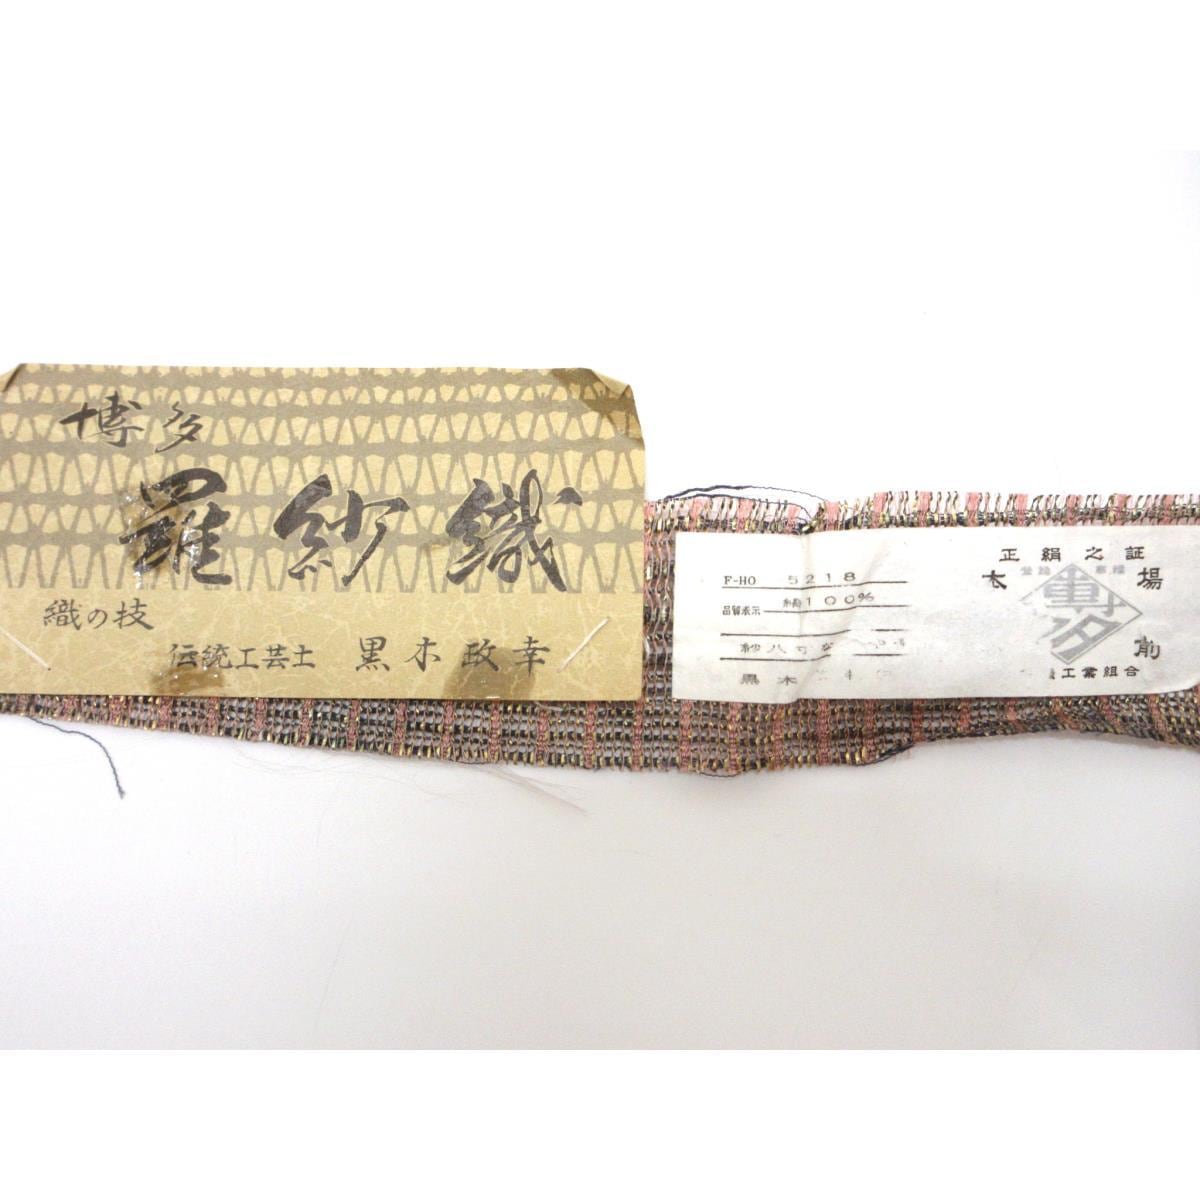 博多
羅紗織
織の技
伝統工芸士 黒木政幸
正絹之証
F-HO 5218
本場
品質表示 絹100%
紗八寸
黒木
工業組合